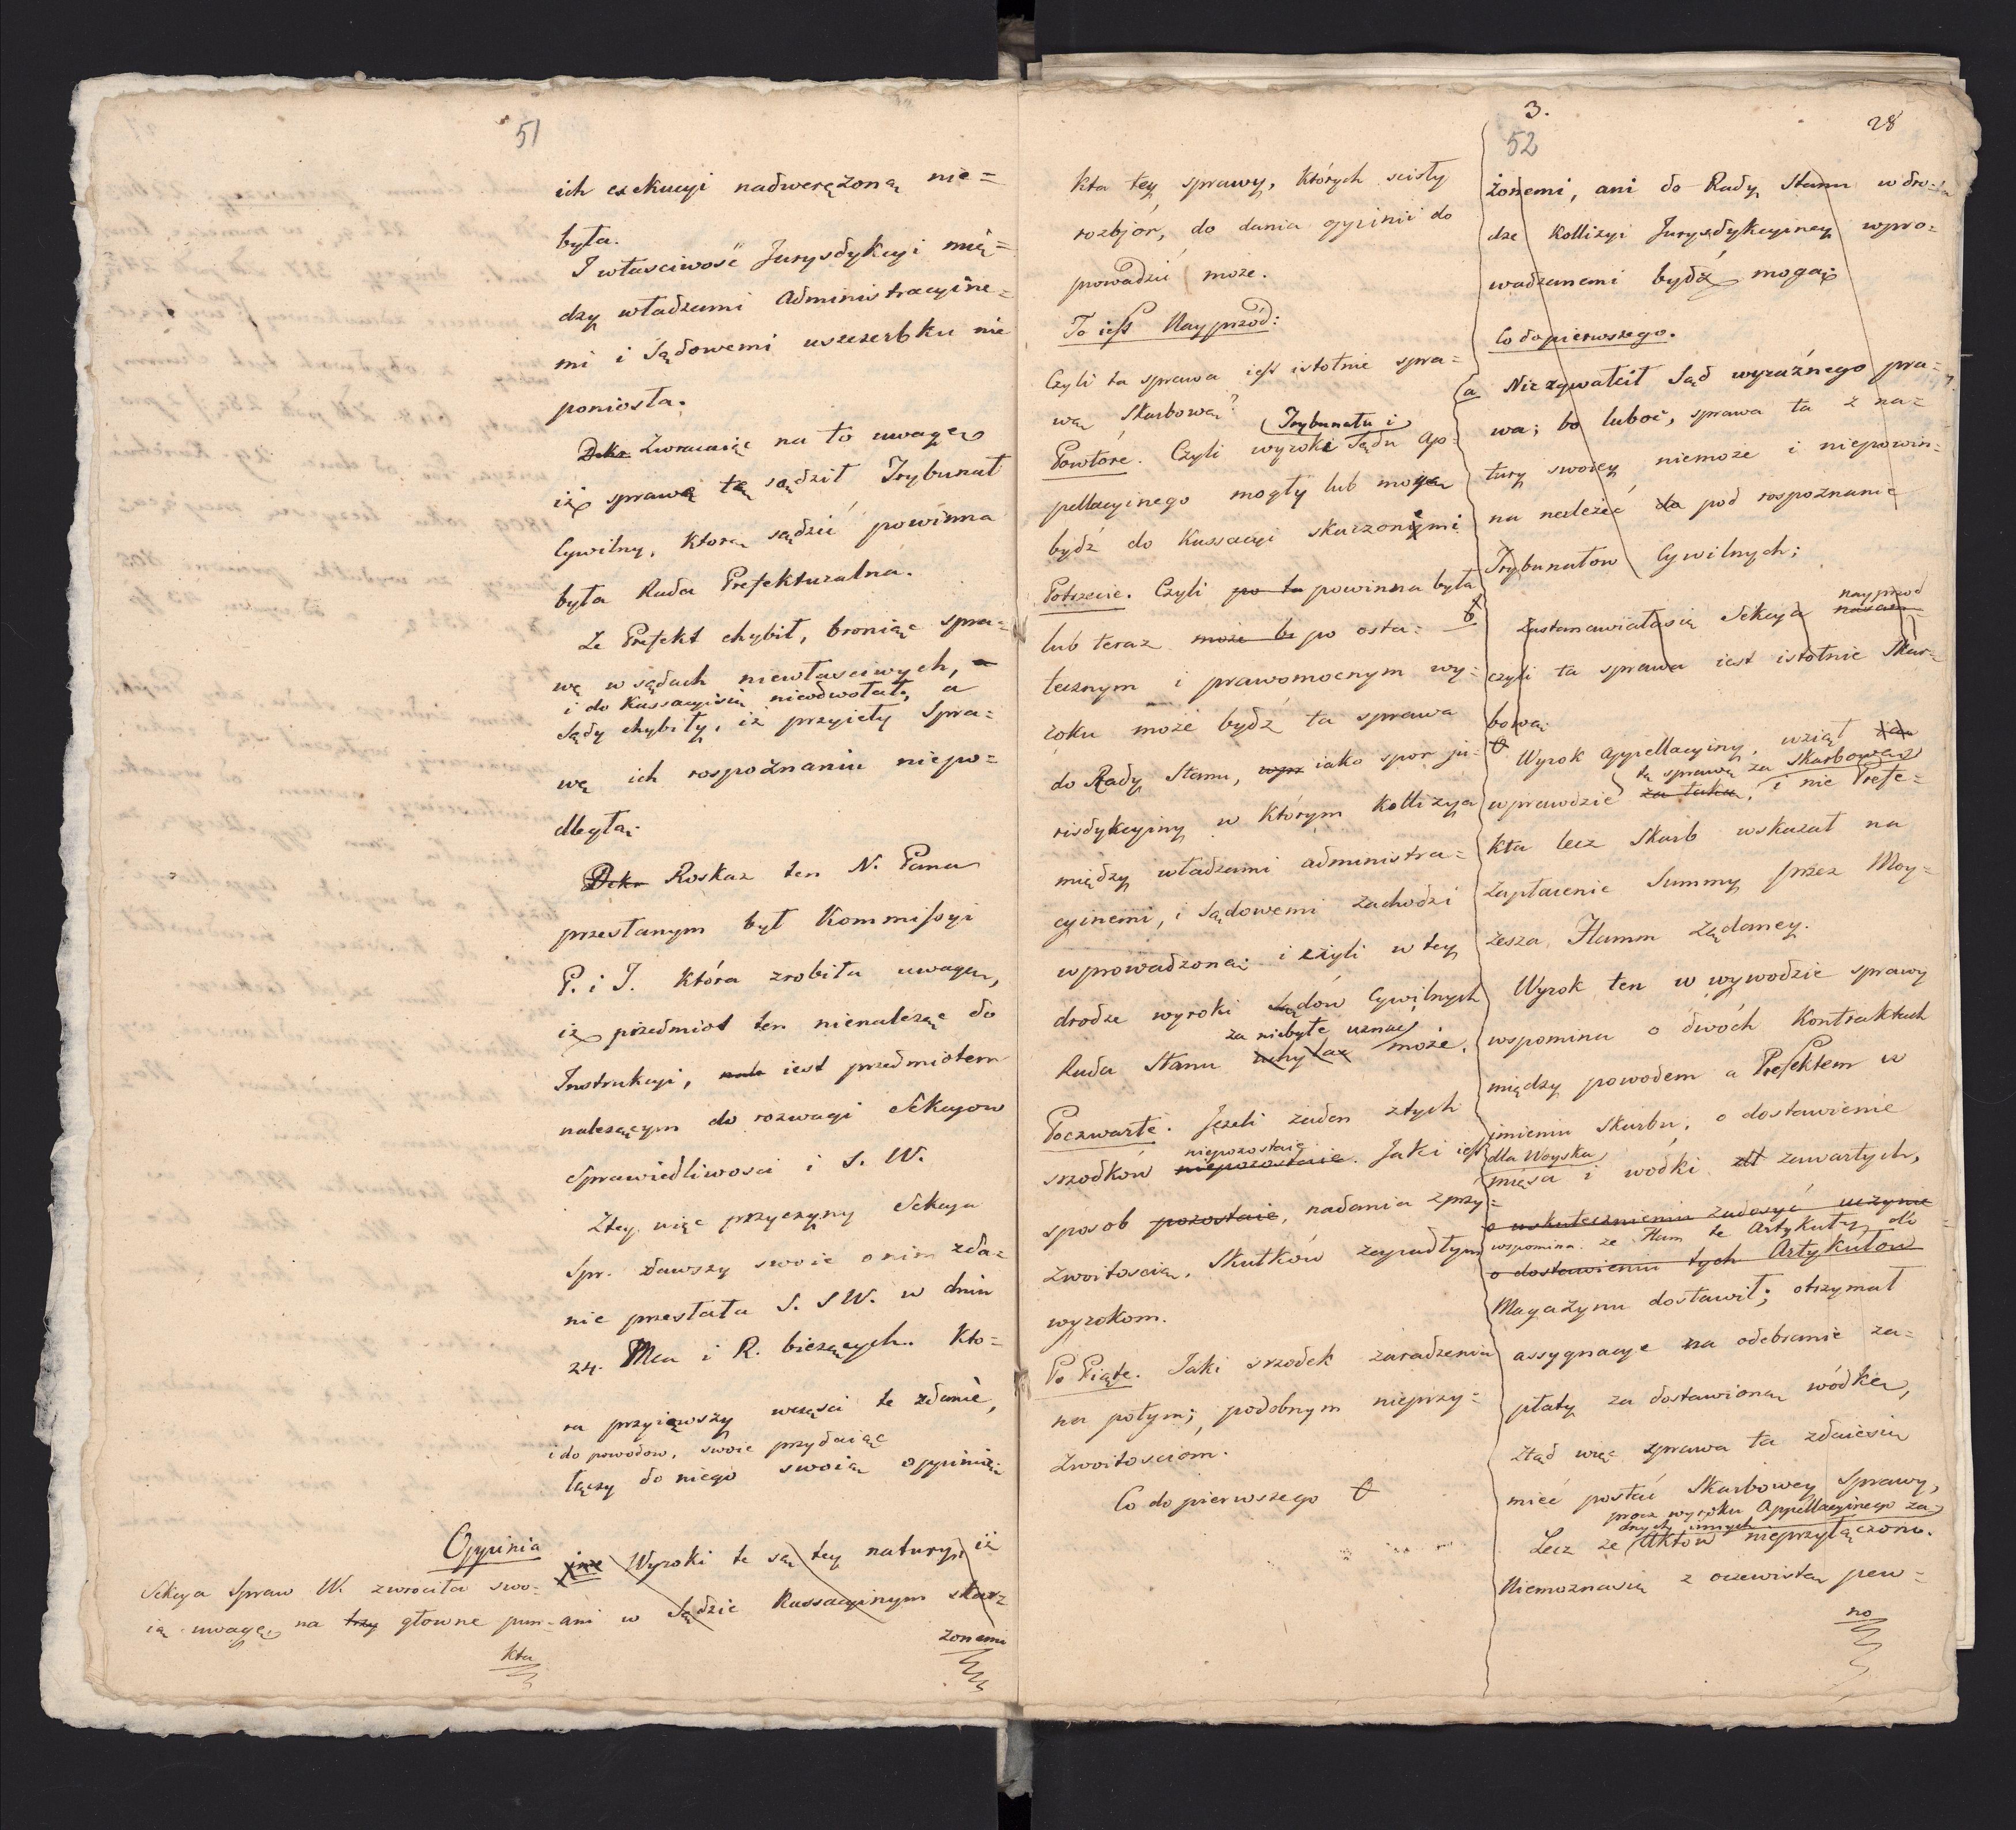 51
ich exekucyi nadwerężoną nie=
była.
I właściwość Jurysdykcyi mię=
dzy władzami Administracyine=
mi i Sądowemi uszczerbku nie
poniosła.
Zwracaiąc na to uwagę
iż sprawę tę sądził Trybunał
Cywilny, którą sądzić powinna
była Rada Prefekturalna.
Że Prefekt chybił, broniąc spra=
wę w sądach niewłaściwych,
i do Kassacyi się nieodwołał, a
Sądy chybiły, iż przyięły Spra=
wę ich rospoznaniu niepo=
dległą.
Roskaz ten N. Pana
przesłanym był Kommissyi
P. i J. która zrobiła uwagę,
iż przedmiot ten nienależąc do
Instrukcyi, iest przedmiotem
należącym do rozwagi Sekcyow
Sprawiedliwości i S. W.
Z tey więc przyczyny Sekcya
Spr. dawszy swoie o nim zda=
nie przesłała S. S W. w dniu
24. Mca i R. bieżących. Kto=
ra przyiąwszy w części te zdanie,
i do powodow, swoie przydaiąc
łączy do niego swoią oppinią.
Oppinia
Sekcya Spraw W. zwrociła swo=
ią uwagę, na trzy głowne pun=
kta
Wyroki te są tey natury, iż
ani w Sądzie Kassacyinym skar=
żonemi
3.
52
28
kta tey sprawy, których scisły
rozbjór, do dania oppinii do
prowadzić może.
To iest Nayprzod:
Czyli ta sprawa iest istotnie spra=
wą Skarbową?
Trybunału i
Powtóre. Czyli wyroki Sądu Ap=
pellacyinego mogły lub mogą
bydź do Kassacyi skarżonymi.
Potrzecie. Czyli po ta powinna była
lub teraz może b po osta=
tecznym i prawomocnym wy=
roku może bydź ta sprawa
do Rady Stanu, wpr iako spor ju=
risdykcyiny w którym Kollizya
między władzami administra=
cyinemi, i Sądowemi zachodzi
wprowadzoną i czyli w tey
drodze wyroki Sądów Cywilnych
za niebyłe uznać
Rada Stanu uchylać może.
Poczwarte. Jeżeli żaden z tych
niepozostaie
srzodków niepozostaie. Jaki iest
sposob pozostaie, nadania z przy=
zwoitością, Skutków zapadłym
wyrokom.
Po Piąte. Jaki srzodek zaradzenia
na potym; podobnym nieprzy=
zwoitosciom.
Co do pierwszego
żonemi, ani do Rady Stanu w dro=
dze Kollizyi Jurysdykcyiney wpro=
wadzanemi bydź mogą.
Co do pierwszego.
a Niezgwałcił Sąd wyraźnego pra=
wa; bo luboć, sprawa ta z na=
tury swoiey niemoże i niepowin=
na należeć pod rospoznanie
Trybunałow Cywilnych;
nayprzod
b Zastanawiała się Sekcya
czyli ta sprawa iest istotnie Skar=
bową.
Wyrok Appellacyiny, wziął
tę sprawę za Skarbową
wprawdzie za taką, i nie Prefe=
kta lecz Skarb wskazał na
zapłacenie Summy przez Moy=
żesza Hamm żądaney.
Wyrok ten w wywodzie sprawy
wspomina o dwóch Kontraktach
między powodem a Prefektem w
imieniu Skarbu, o dostawienie
dla Woyska
mięsa i wodki zawartych,
o uskutecznieniu zadosyć uczynie
wspomina że Ham te Artykuły do
o dostawieniu tych Artykułow
Magazynu dostawił; otrzymał
assygnacye na odebranie za=
płaty za dostawioną wódkę,
Ztąd więc sprawa ta zdaie się
mieć postać Skarbowey Sprawy,
procz wyroku Appellacyinego ża=
dnych innych
Lecz że Aktow nieprzyłączono.
Niemożna się z oczewistą pew=
no